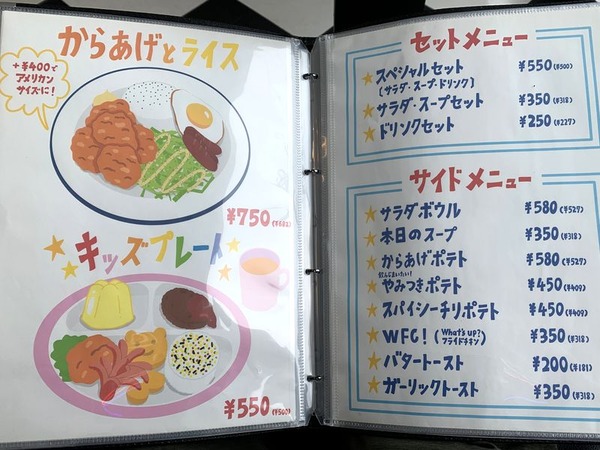 からあげとライス
+¥400で
アメリカン
サイズに!
¥750(¥682)
キッズプレート
¥550(¥500)
セットメニュー
スペシャルセット ¥550(¥500)
(サラダ・スープ・ドリンク)
サラダ・スープセット ¥350(¥318)
ドリンクセット ¥250(¥227)
サイドメニュー
サラダボウル ¥580(¥527)
本日のスープ ¥350(¥318)
からあげポテト ¥580(¥527)
やみつきポテト ¥450(¥409)
スパイシーチリポテト ¥450(¥409)
WFC!(What's up? フライドチキン) ¥350(¥318)
バタートースト ¥200(¥181)
ガーリックトースト ¥350(¥318)